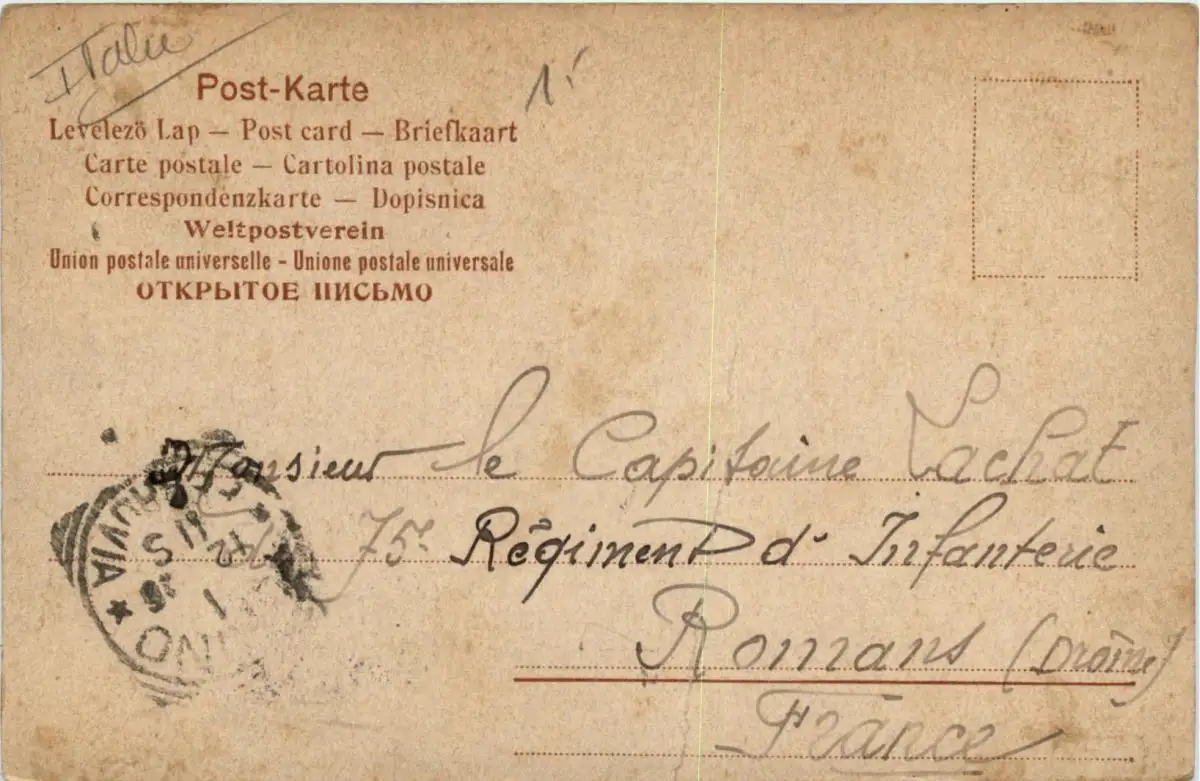 Italie
1.-
Post-Karte
Levelező Lap — Post card — Briefkaart
Carte postale — Cartolina postale
Correspondenzkarte — Dopisnica
Weltpostverein
Union postale universelle - Unione postale universale
ОТКРЫТОЕ ПИСЬМО
Monsieur le Capitaine Lachat
75e Régiment d' Infanterie
Romans (Drôme)
France